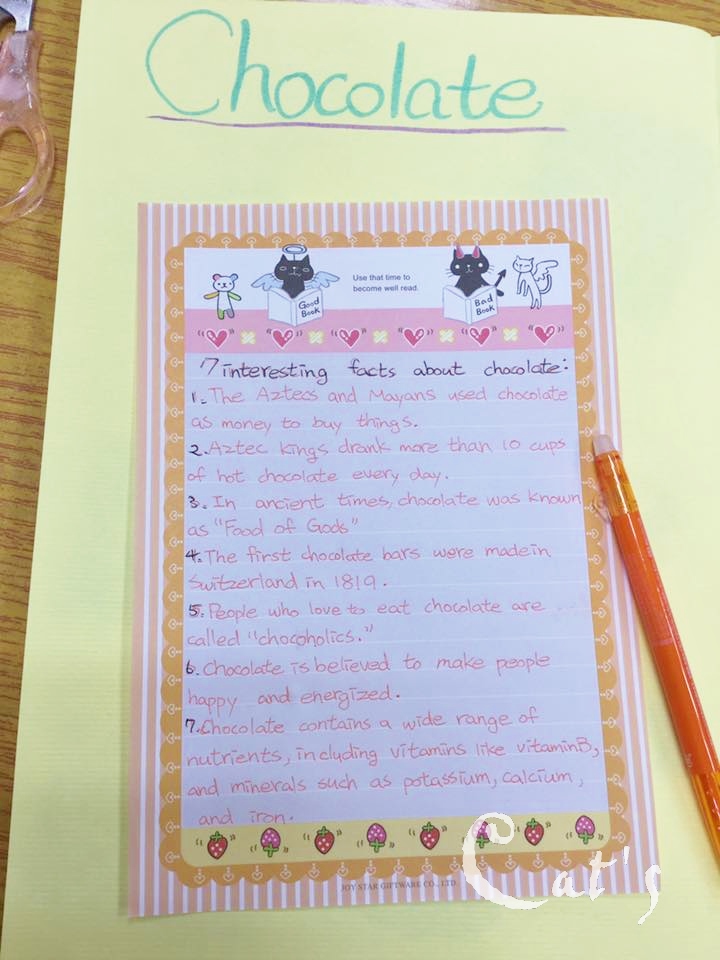 Chocolate
Use that time to
become well read.
Good
Book
Bad
Book
7 interesting facts about chocolate:
1. The Aztecs and Mayans used chocolate
as money to buy things.
2. Aztec kings drank more than 10 cups
of hot chocolate every day.
3. In ancient times, chocolate was known
as "Food of Gods"
4. The first chocolate bars were made in
Switzerland in 1819.
5. People who love to eat chocolate are
called "chocoholics."
6. Chocolate is believed to make people
happy and energized.
7. Chocolate contains a wide range of
nutrients, including vitamins like vitamin B,
and minerals such as potassium, calcium,
and iron.
JOY STAR GIFTWARE CO., LTD
Cat's